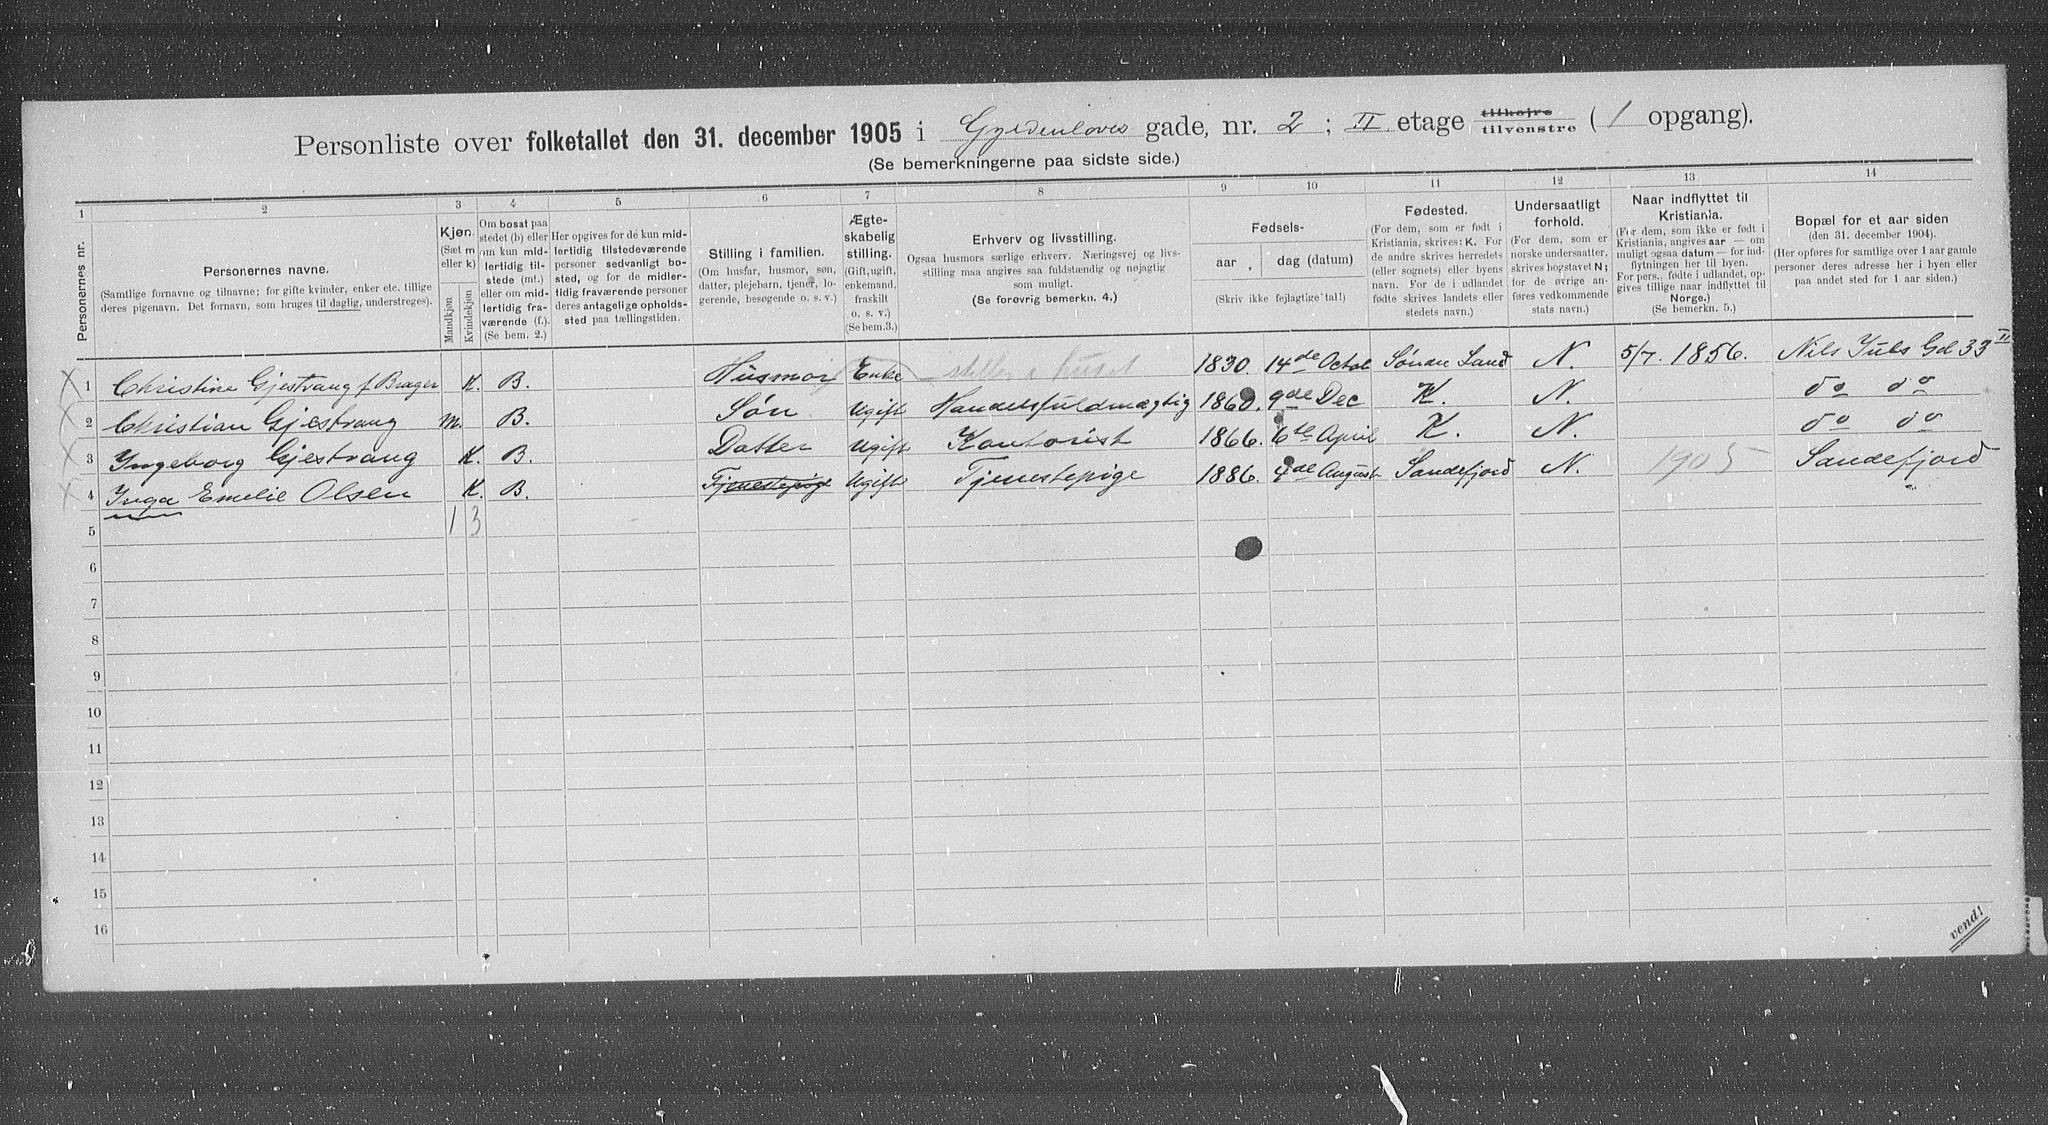 Personliste over folketallet den 31. december 1905 i Gyldenløves gade, nr. 2 ; II etage tilhøjre tilvenstre ( 1 opgang).
(Se bemerkningerne paa sidste side.)
1 2 3 4 5 6 7 8 9 10 11 12 13 14
Personernes nr.
Personernes navne.
(Samtlige fornavne og tilnavne; for gifte kvinder, enker etc. tillige
deres pigenavn. Det fornavn, som bruges til daglig, understreges).
Kjøn.
(Sæt m
eller k)
Mandkjøn
Kvindekjøn
Om bosat paa
stedet (b) eller
om kun mid-
lertidig til-
stede (mt.)
eller om mid-
lertidig fra-
værende (f.)
(Se bem. 2.)
Her opgives for de kun mid-
lertidig tilstedeværende
personer sedvanligt bo-
sted, og for de midler-
tidig fraværende personer
deres antagelige opholds-
sted paa tællingstiden.
Stilling i familien.
(Om husfar, husmor, søn,
datter, plejebarn, tjener, lo-
gerende, besøgende o. s. v.)
Ægte-
skabelig
stilling.
(Gift, ugift,
enkemand,
fraskilt
o. s. v.)
(Se bem.3.)
Erhverv og livsstilling.
Ogsaa husmors særlige erhverv. Næringsvej og livs-
stilling maa angives saa fuldstændig og nøjagtig
som muligt.
(Se forøvrig bemerkn. 4.)
Fødsels-
aar
dag (datum)
(Skriv ikke fejlagtige tal!)
Fødested.
(For dem, som er født i
Kristiania, skrives: K. For
de andre skrives herredets
(eller sognets) eller byens
navn. For de i udlandet
fødte skrives landets eller
stedets navn.)
Undersaatligt
forhold.
(For dem, som er
norske undersaatter,
skrives bogstavet N;
for de øvrige an-
føres vedkommende
stats navn.)
Naar indflyttet til
Kristiania.
(For dem, som ikke er født i
Kristiania, angives aar — om
muligt ogsaa datum — for ind-
flytningen her til byen.
For pers., født i udlandet, op-
gives tillige naar indflyttet til
Norge.)
(Se bemerkn. 5.)
Bopæl for et aar siden
(den 31. december 1904).
(Her opføres for samtlige over 1 aar gamle
personer deres adresse her i byen eller
paa andet sted for 1 aar siden.)
1 Christine Gjestvang f Brager K. B. Husmor Enke 1830. 14de Octob Søndre Land N. 5/7. 1856. Nils Juels Gd 33 II
2 Christian Gjestvang m. B. Søn Ugift Handelsfuldmægtig 1860. 9de Dec K. N. do do
3 Ingeborg Gjestvang K. B. Datter Ugift Kontorist 1866. 6te April K. N. do do
4 Inga Emelie Olsen K. B. Tjenestepige Ugift Tjenestepige 1886. 4de August Sandefjord N. 1905 Sandefjord
5 1 3
6
7
8
9
10
11
12
13
14
15
16
vend!